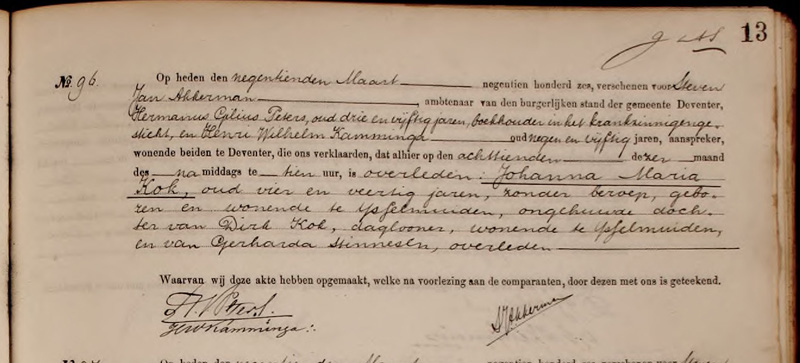 13
No. 96. Op heden den negentienden Maart negentien honderd zes, verschenen voor Steven
Jan Akkerman, ambtenaar van den burgerlijken stand der gemeente Deventer,
Hermanus Peters, oud drie en vijftig jaren, boekhouder in het krankzinnigenge-
sticht, en Henri Wilhelm Kamminga oud negen en vijftig jaren, aanspreker,
wonende beiden te Deventer, die ons verklaarden, dat alhier op den achttienden dezer maand
des na middags te tien uur, is overleden: Johanna Maria
Kok, oud vier en veertig jaren, zonder beroep, gebo-
ren en wonende te Ysselmuiden, ongehuwde doch-
ter van Dirk Kok, daglooner, wonende te Ysselmuiden,
en van Gerharda overleden
Waarvan wij deze akte hebben opgemaakt, welke na voorlezing aan de comparanten, door dezen met ons is geteekend.
Peters
HWKamminga
SJAkkerman
Op heden den